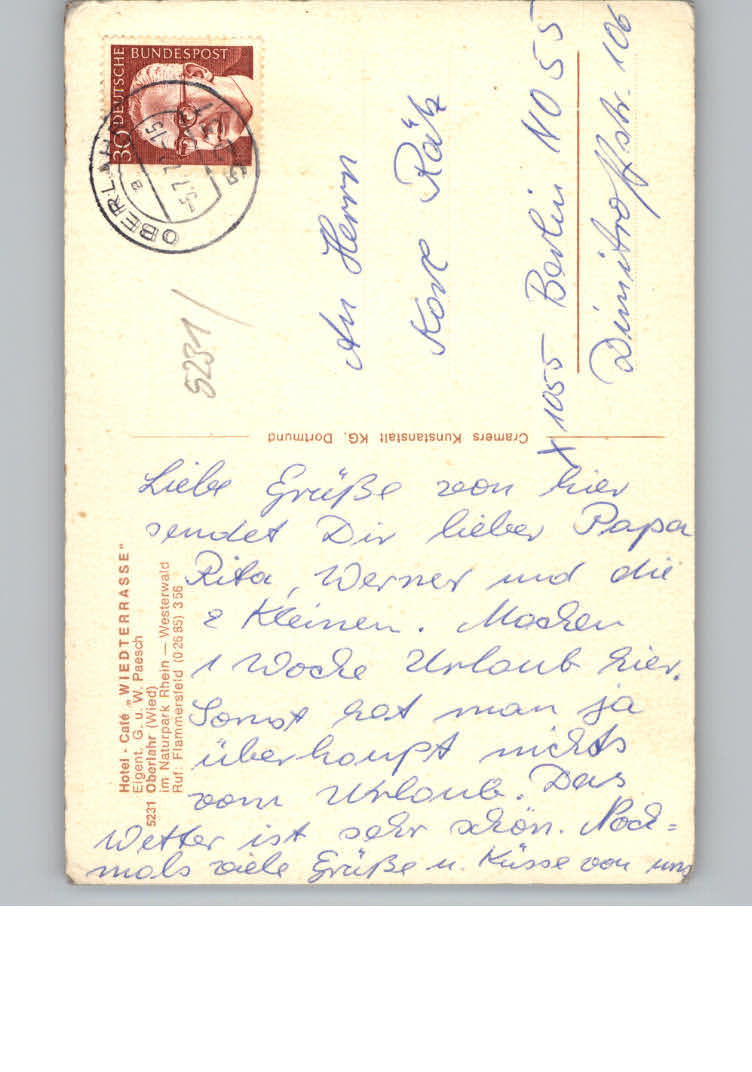 DEUTSCHE BUNDESPOST
30
OBERLAHR
5231/
An Herrn
Karl Rätz
X 1055 Berlin NO 55
Dimitroffstr. 106
Cramers Kunstanstalt KG, Dortmund
Hotel - Café „WIEDTERRASSE"
Eigent. G. u. W. Paesch
5231 Oberlahr (Wied)
im Naturpark Rhein — Westerwald
Ruf: Flammersfeld (0 26 85) 3 56
Liebe Grüße von hier
sendet Dir lieber Papa
Rita, Werner und die
2 Kleinen. Machen
1 Woche Urlaub hier.
Sonst hat man ja
überhaupt nichts
vom Urlaub. Das
Wetter ist sehr schön. Noch=
mals viele Grüße u. Küsse von uns